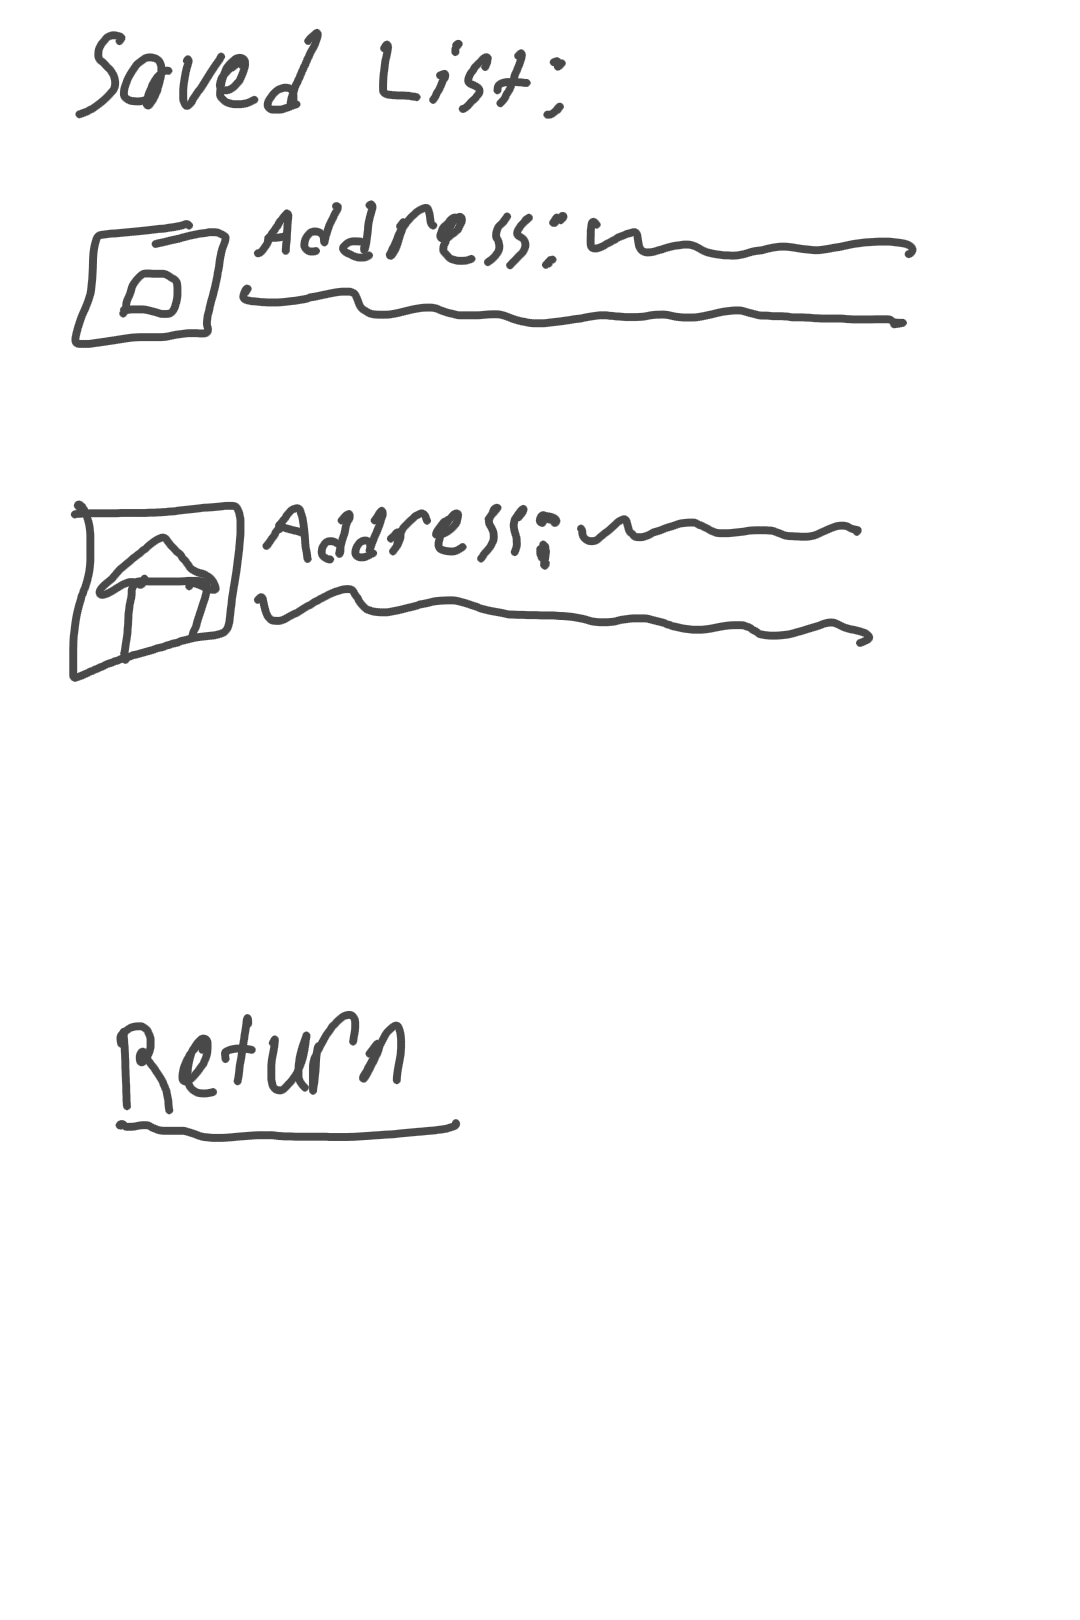 Saved List:
Address:
Address:
Return